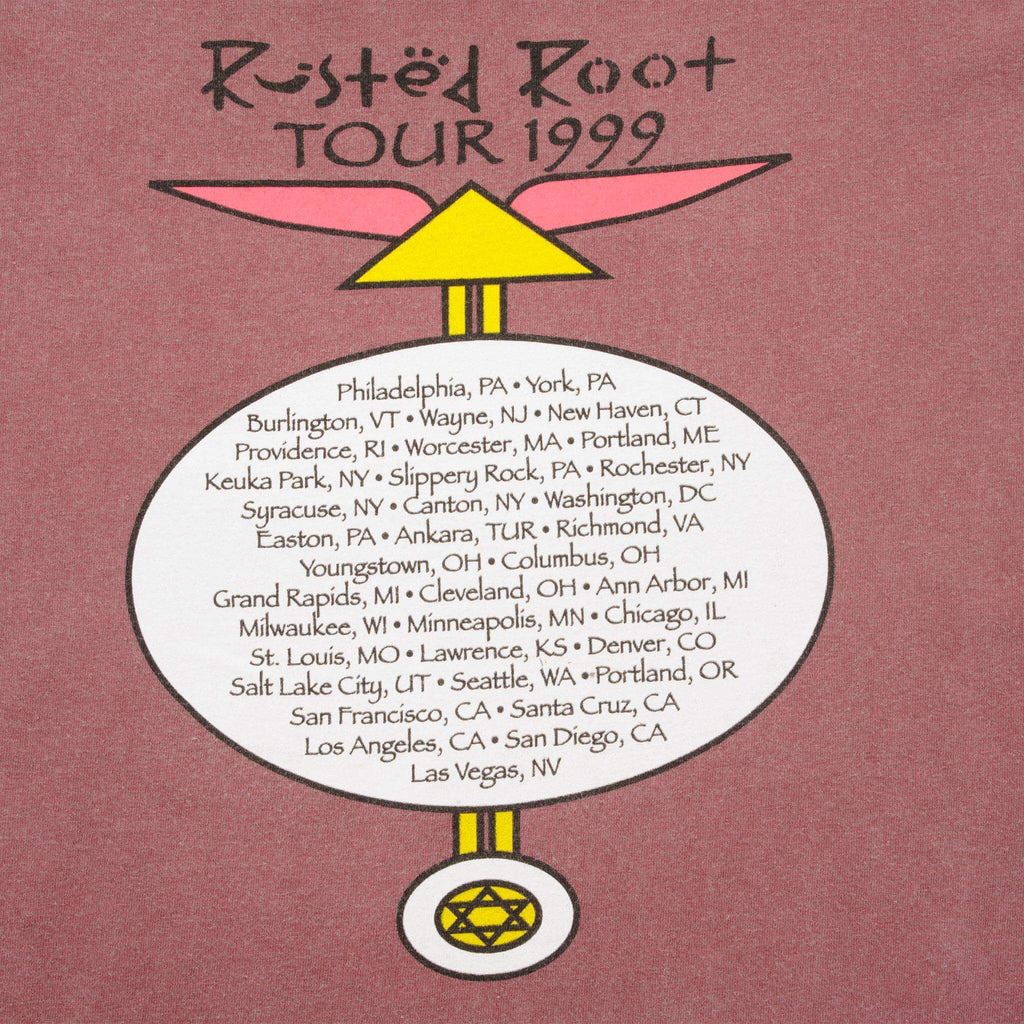 Rustëd Root
TOUR 1999
Philadelphia, PA • York, PA
Burlington, VT • Wayne, NJ • New Haven, CT
Providence, RI • Worcester, MA • Portland, ME
Keuka Park, NY • Slippery Rock, PA • Rochester, NY
Syracuse, NY • Canton, NY • Washington, DC
Easton, PA • Ankara, TUR • Richmond, VA
Youngstown, OH • Columbus, OH
Grand Rapids, MI • Cleveland, OH • Ann Arbor, MI
Milwaukee, WI • Minneapolis, MN • Chicago, IL
St. Louis, MO • Lawrence, KS • Denver, CO
Salt Lake City, UT • Seattle, WA • Portland, OR
San Francisco, CA • Santa Cruz, CA
Los Angeles, CA • San Diego, CA
Las Vegas, NV